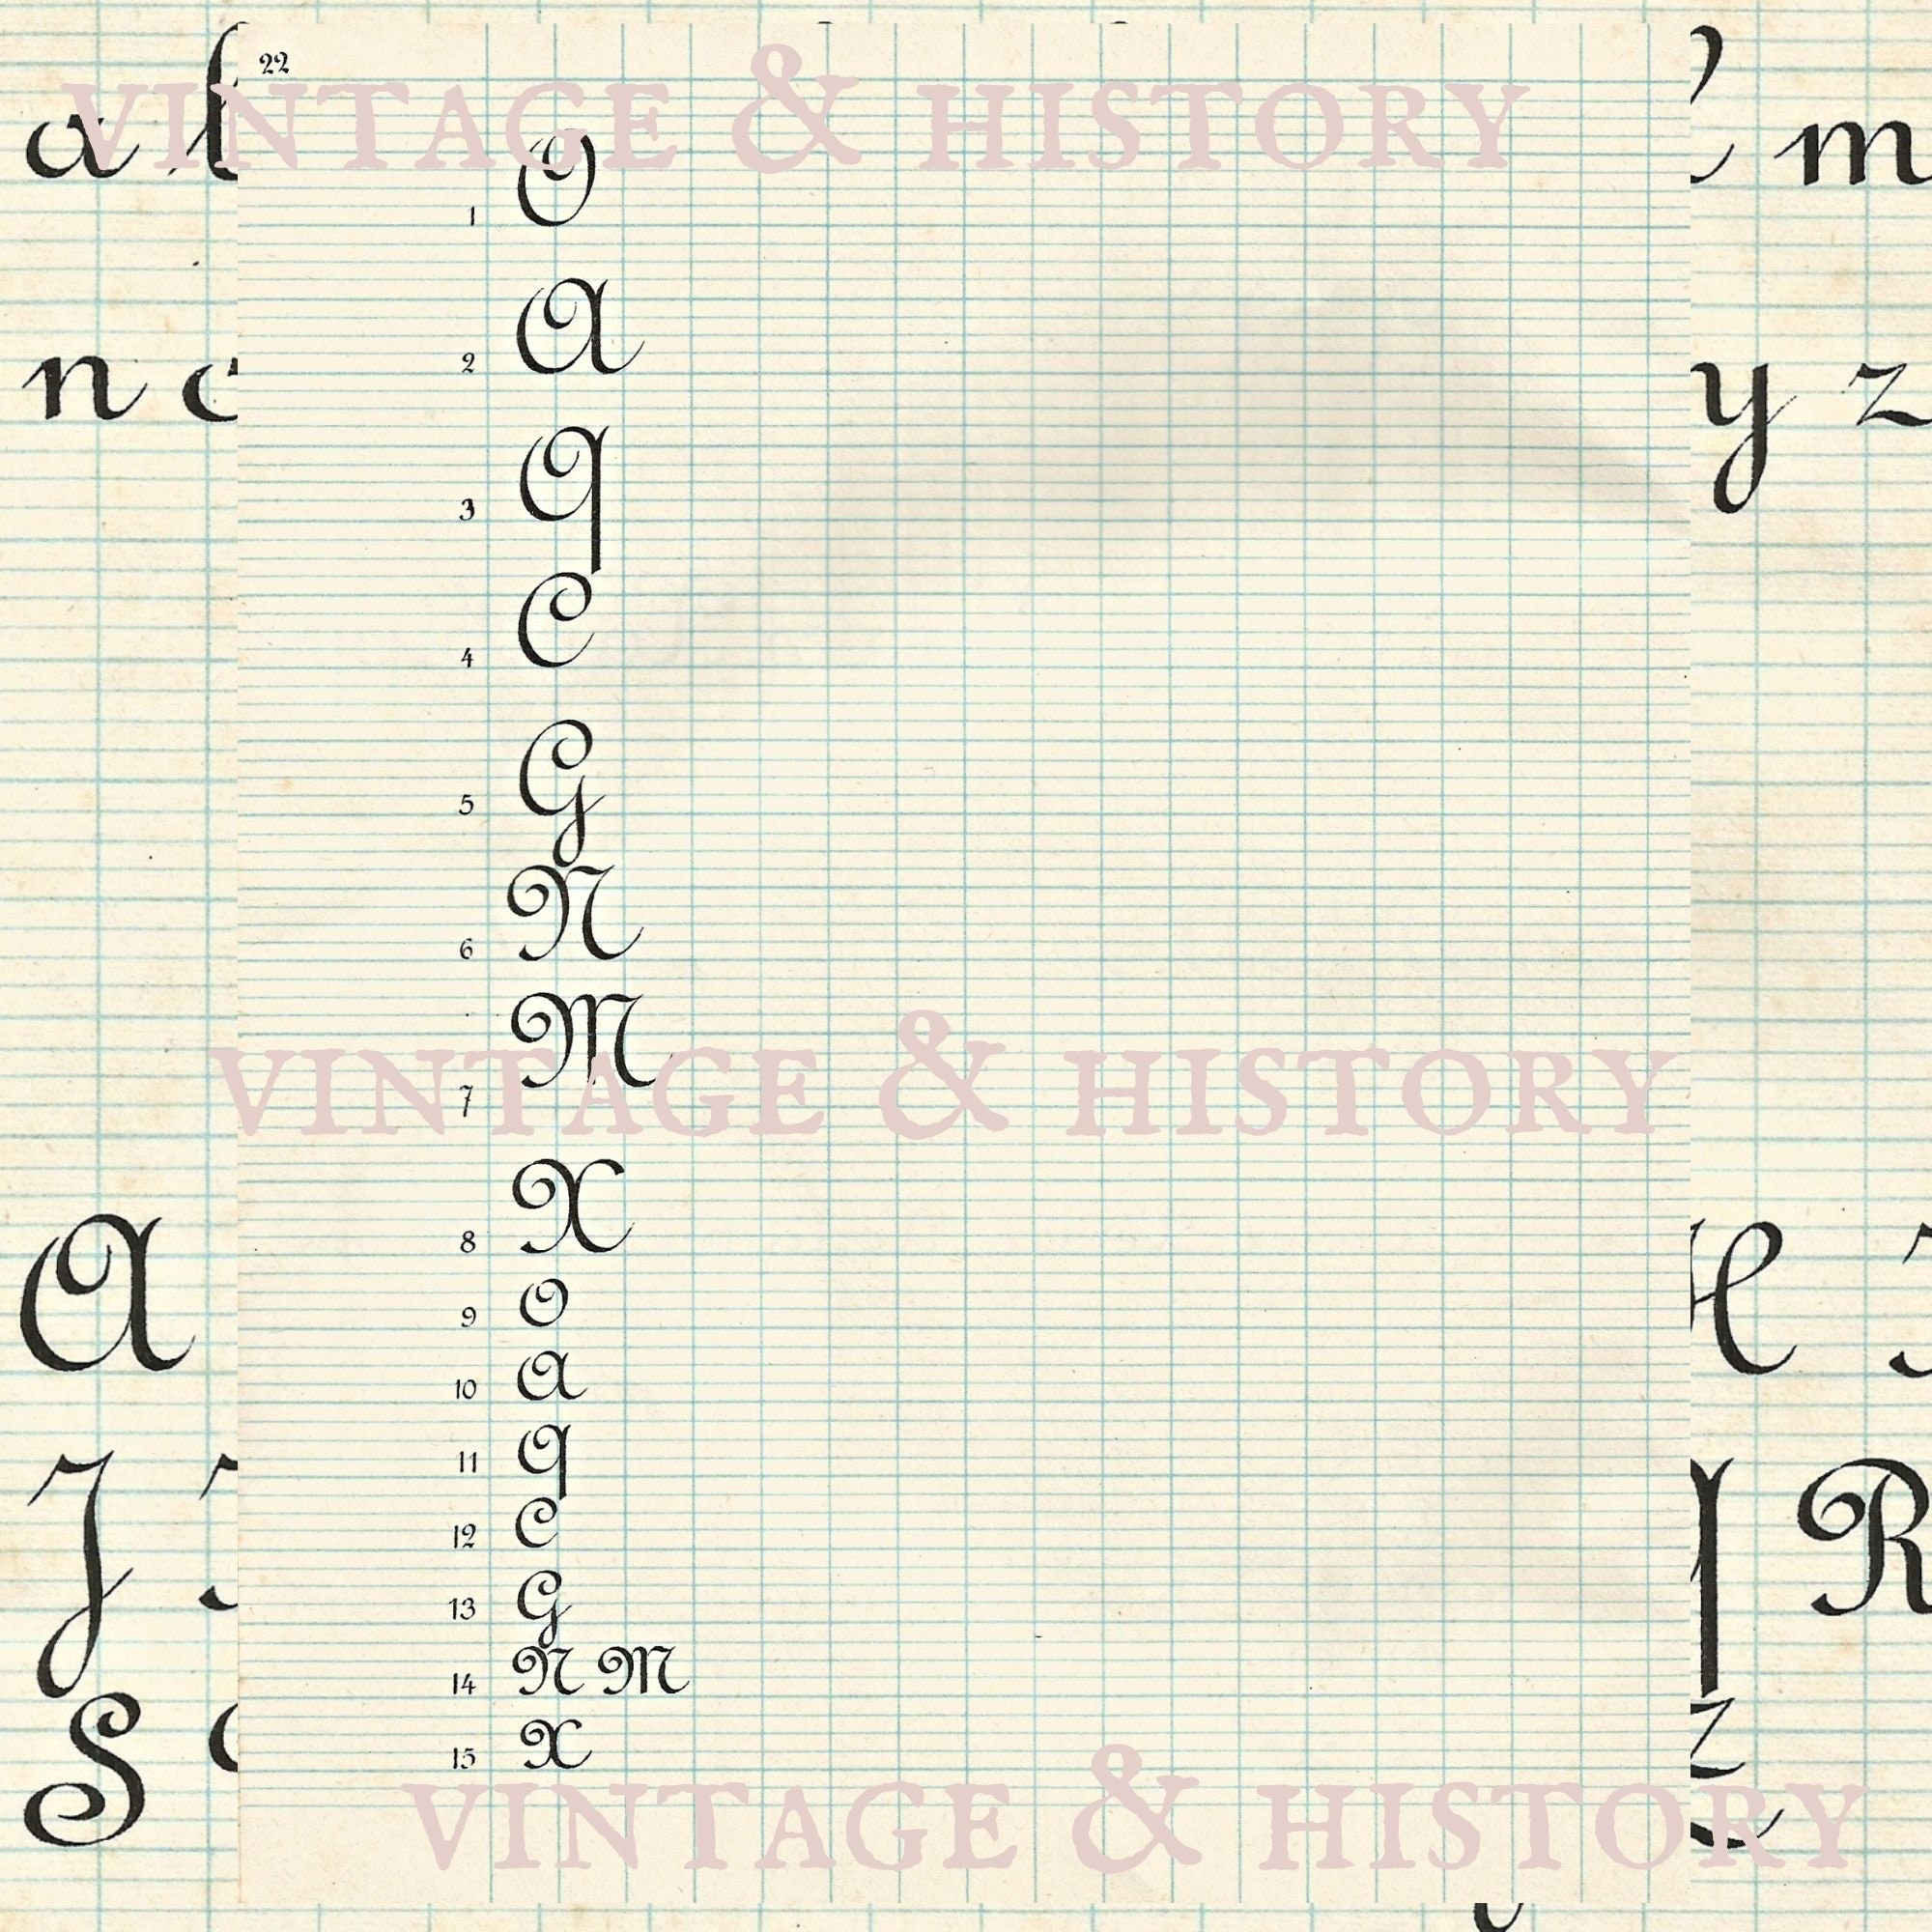 22
VINTAGE & HISTORY
a m
1 O
2 A
n y z
3 Q
4 C
5 G
6 N
7 M
VINTAGE & HISTORY
8 X
A H
9 O
10 A
11 Q
J R
12 C
13 G
14 N M
15 X
S
VINTAGE & HISTORY